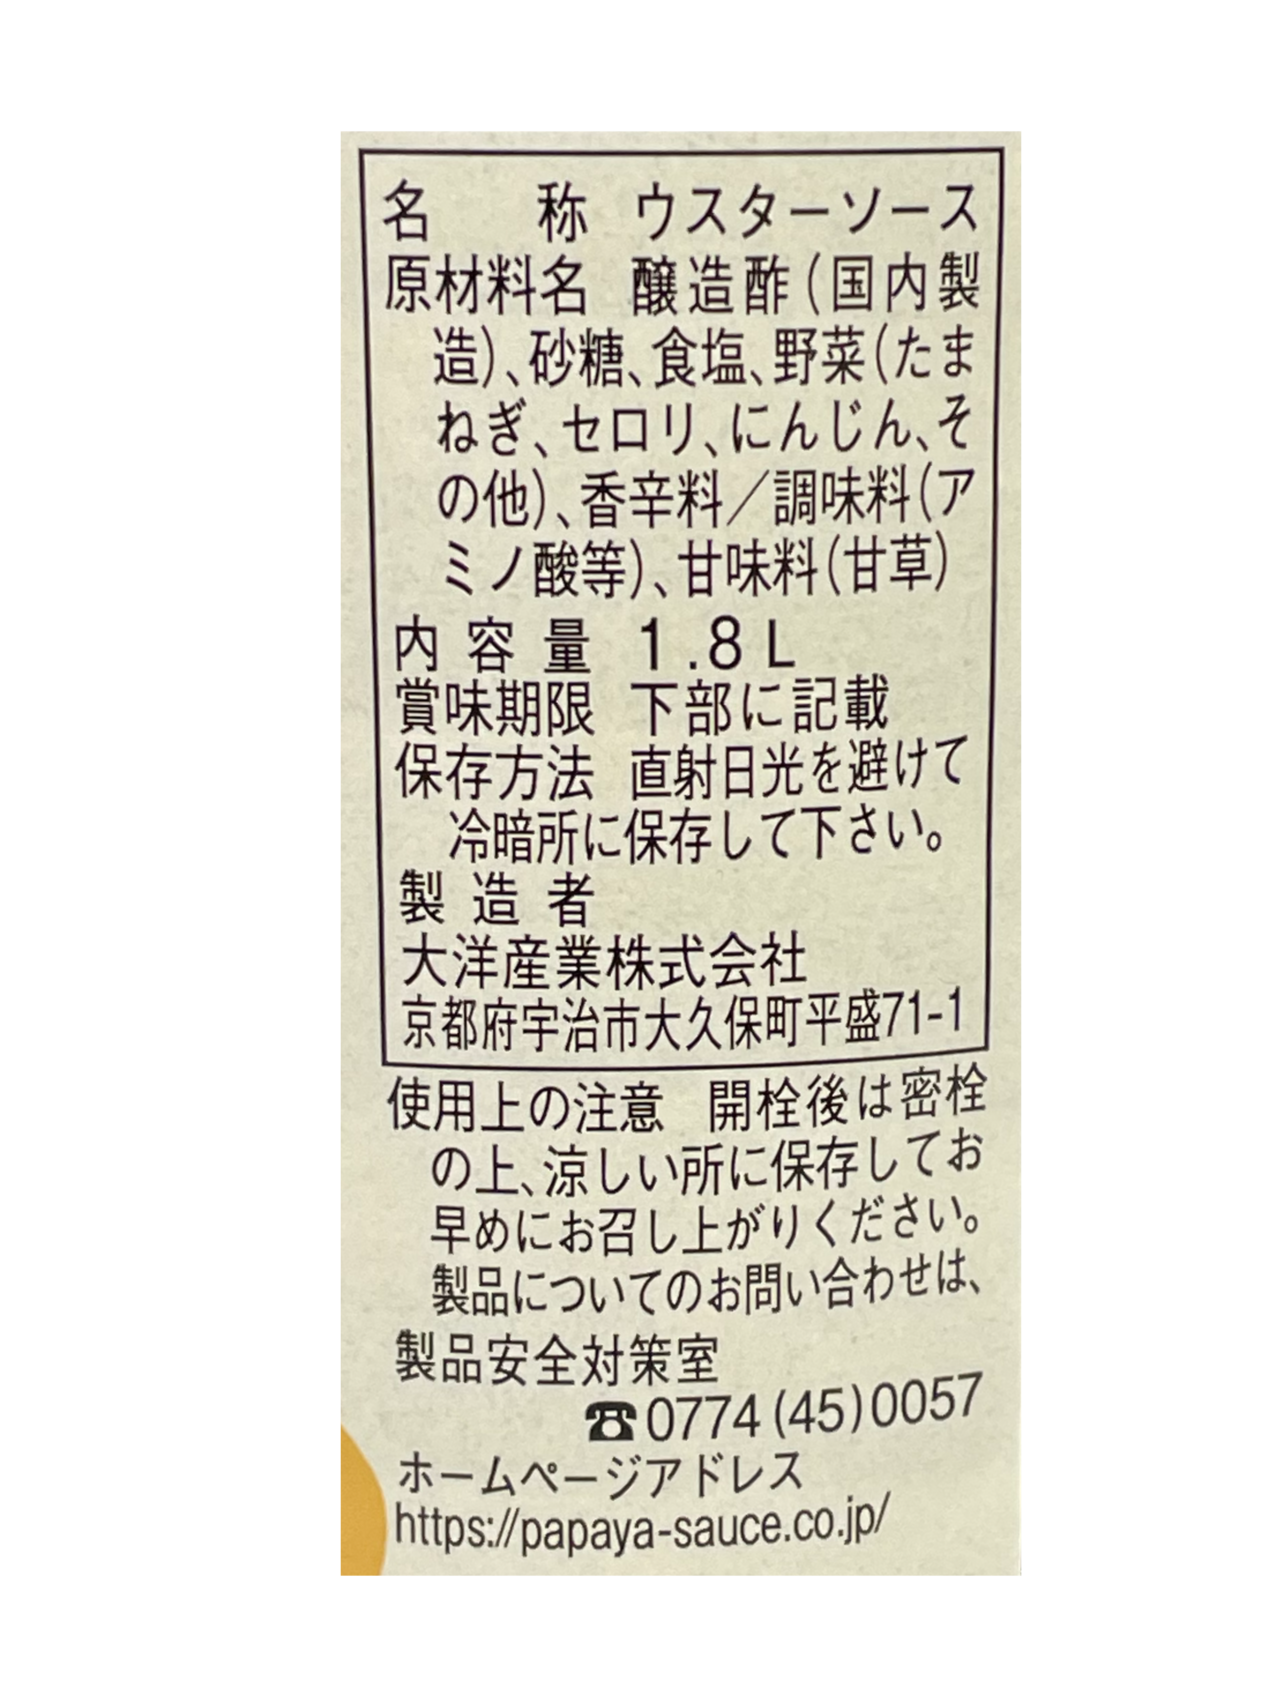 名称 ウスターソース
原材料名 醸造酢(国内製
造)、砂糖、食塩、野菜(たま
ねぎ、セロリ、にんじん、そ
の他)、香辛料/調味料(ア
ミノ酸等)、甘味料(甘草)
内容量 1.8L
賞味期限 下部に記載
保存方法 直射日光を避けて
冷暗所に保存して下さい。
製造者
大洋産業株式会社
京都府宇治市大久保町平盛71-1
使用上の注意 開栓後は密栓
の上、涼しい所に保存してお
早めにお召し上がりください。
製品についてのお問い合わせは、
製品安全対策室
☎0774(45)0057
ホームページアドレス
https://papaya-sauce.co.jp/